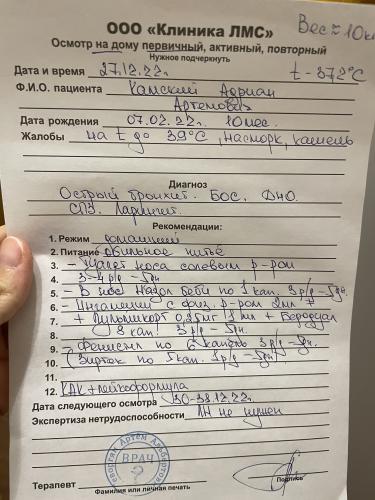 Вес ≈ 10кг
ООО «Клиника ЛМС»
Осмотр на дому первичный, активный, повторный
Нужное подчеркнуть
Дата и время 27.12.22г. t - 37,2°C
Ф.И.О. пациента Хамский Адриан
Артемович
Дата рождения 07.02.22г. 10 мес.
Жалобы на t до 39°C, насморк, кашель
Диагноз
Острый бронхит. БОС. ДНО.
СПЗ. Ларингит.
Рекомендации:
1. Режим домашний
2. Питание обильное питьё
3. - Туалет носа солевым р-ром
4. 3-4 р/д - 5дн.
5. - В нос Назол Беби по 1 кап. 3 р/д - 5дн.
6. - Ингаляции с физ. р-ром 2мл +
7. + Пульмикорт 0,25мг 1 мл + Беродуал
8. 8 кап. 3 р/д - 5дн.
9. - Фенистил по 6 капель 3 р/д - дн.
10. Зиртек по 5 кап. 1 р/д - 5дн.
11.
12. КАК + лейкоформула
Дата следующего осмотра 30-31.12.22г.
Экспертиза нетрудоспособности ЛН не нужен
Артем
ВРАЧ
Терапевт
Фамилия или личная печать
Подпись